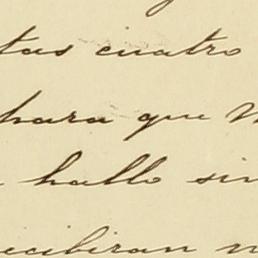 tas cuatro
para que
hallo sin
recibiran